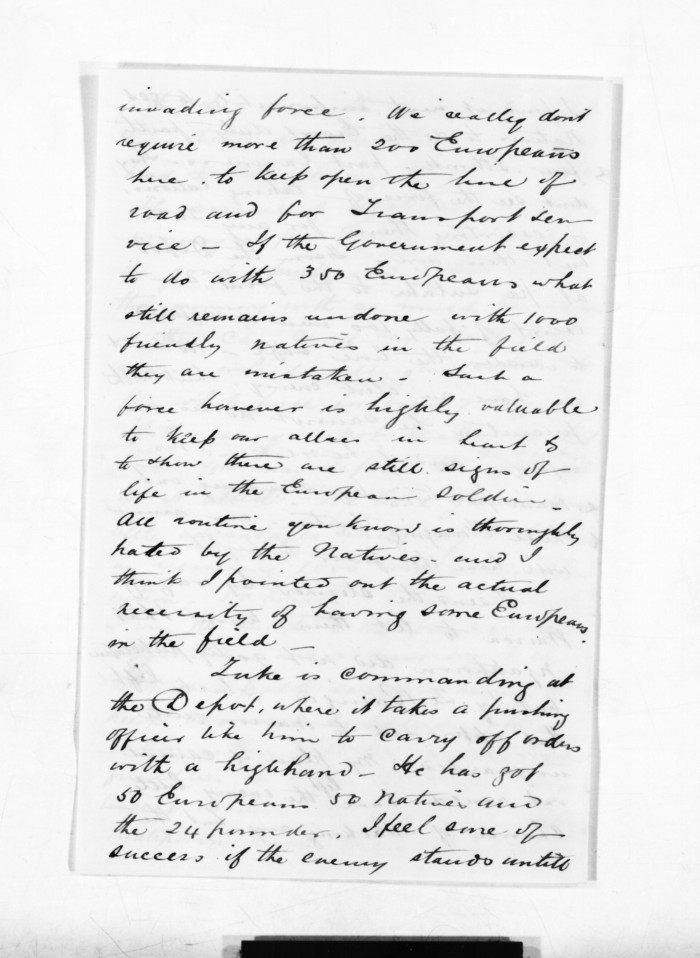 invading force. We really don't
require more than 200 Europeans
here to keep open the line of
road and for Transport ser
vice - If the Government expect
to do with 350 Europeans what
still remains undone with 1000
friendly natives in the field
they are mistaken. Such a
force however is highly valuable
to keep our allies in heart &
to show there are still signs of
life in the European soldier -
All routine you know is thoroughly
hated by the Natives - and I
think I pointed out the actual
necessity of having some Europeans
in the field -
Tuke is commanding at
the Depot, where it takes a pushing
officer like him to carry off orders
with a highhand - He has got
50 Europeans 50 Natives and
the 24 pounder. I feel sure of
success if the enemy stands untill